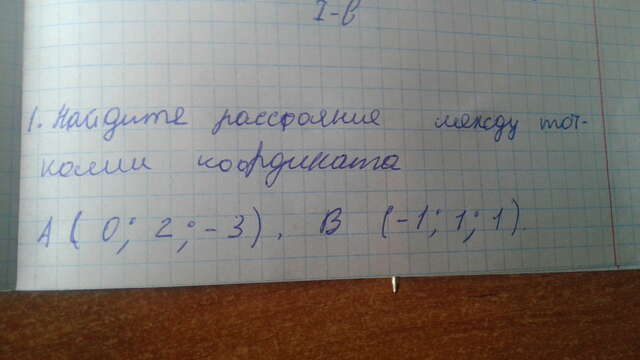 I-B
1. Найдите расстояние между точ-
ками координата
A (0; 2; -3), B (-1; 1; 1).